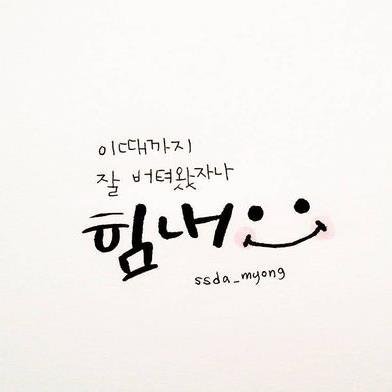 이때까지
잘 버텨왔자나
힘내
ssda_myong